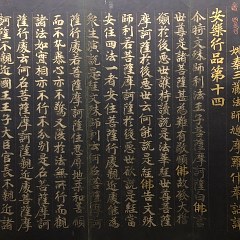 安樂行品第十四 姚秦三藏法師鳩摩羅什奉詔譯
尒時文殊師利法王子菩薩摩訶薩白佛言
世尊是諸菩薩甚為難有敬順佛故發大誓
願於後惡世護持讀說是法華經世尊菩薩
摩訶薩於後惡世云何能說是經佛告文殊
師利若菩薩摩訶薩於後惡世欲說是經當
安住四法一者安住菩薩行處親近處能為
眾生演說是經文殊師利云何名菩薩摩訶
薩行處若菩薩摩訶薩住忍辱地柔和善順
而不卒暴心亦不驚又復於法無所行而觀
諸法如實相亦不行不分別是名菩薩摩訶
薩行處云何名菩薩摩訶薩親近處菩薩摩
訶薩不親近國王王子大臣官長不親近諸